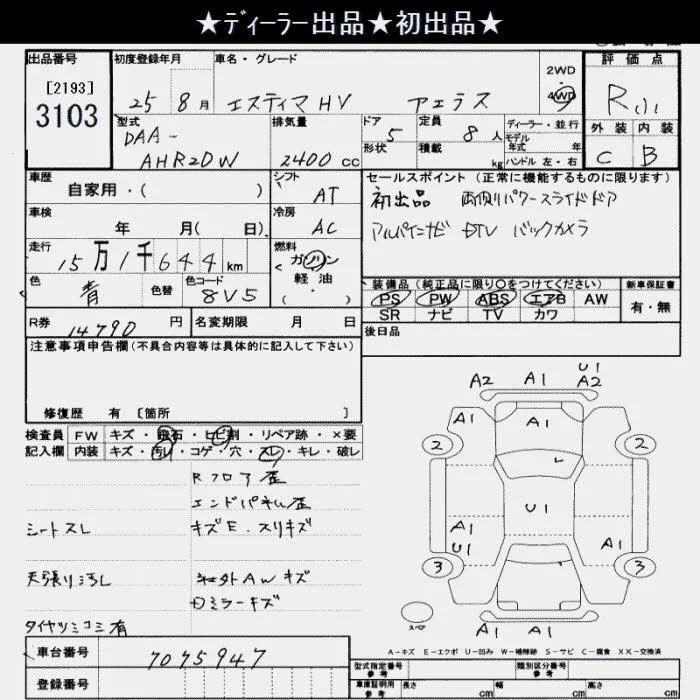 ★ディーラー出品★初出品★
出品番号 [2193] 3103
初度登録年月 25年 8月
車名・グレード エスティマHV アエラス
2WD・4WD
評価点 R
外装 C 内装 B
型式 DAA-AHR20W
排気量 2400 cc
ドア 5
形状
定員 8 人
積載 kg
ディーラー・並行
モデル年式 年
ハンドル 左・右
車歴 自家用・( )
シフト AT
車検 年 月( 日)
冷房 AC
走行 15万1千644 km
燃料 ガソリン・軽油・( )
色 青 色替 色コード 8V5
R券 14790 円
名変期限 月 日
セールスポイント(正常に機能するものに限ります)
初出品 両側パワースライドドア
アルパインナビ DTV バックカメラ
装備品(純正品に限り○をつけてください)
PS PW ABS エアB AW
SR ナビ TV カワ
新車保証書 有・無
後日品
注意事項申告欄(不具合内容等は具体的に記入して下さい)
修復歴 有 [箇所 ]
検査員記入欄
FW キズ・飛石・ヒビ割・リペア跡・×要
内装 キズ・汚れ・コゲ・穴・スレ・キレ・破レ
Rフロア歪
エンドパネル歪
シートスレ
キズE・スリキズ
天張り汚し
社外AWキズ
ミラーキズ
タイヤツミコミ有
車台番号 7075947
登録番号
U1
A2 A1 A2
A1 A1
2 2
U1
A1
U1
A1
3 3
スペア
A1 A1
A-キズ E-エクボ U-凹み W-補修跡 S-サビ C-腐食 XX-交換済
型式指定番号 参考
類別区分番号 参考
車庫証明用 参考 長さ cm 幅 cm 高さ cm